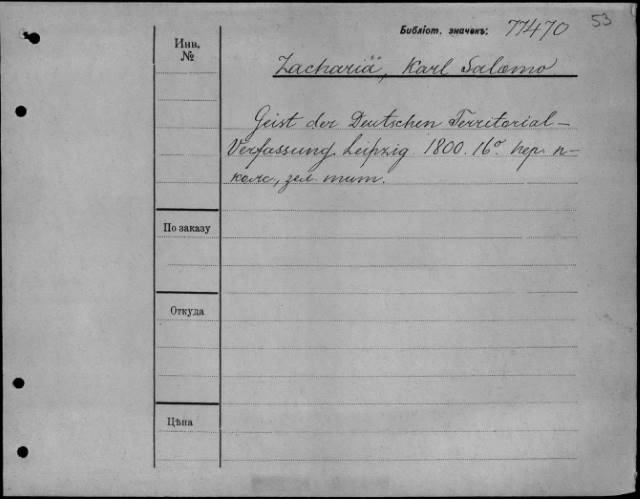 53
Библіот. значекъ: 77470
Инв. №
Zachariä, Karl Salomo
Geist der Deutschen Territorial-
Verfassung. Leipzig. 1800. 16°. пер. п-
кож, зел. тит.
По заказу
Откуда
Цѣна